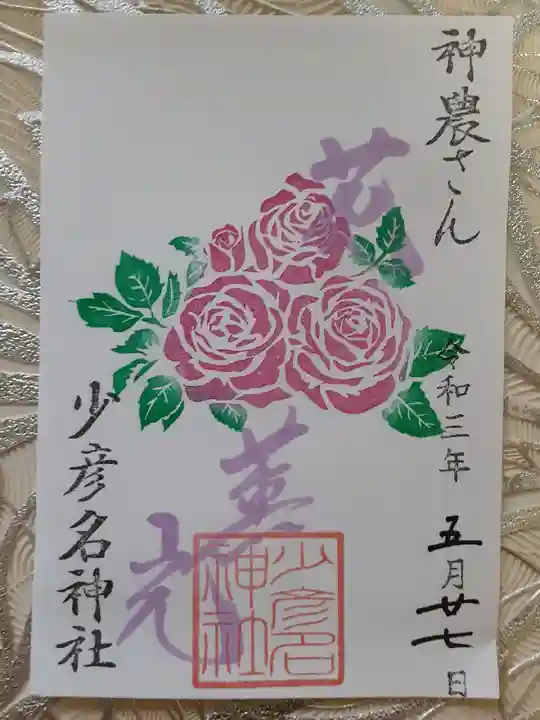 神農さん
令和三年 五月廿七日
少彦名神社
少彦名
神社